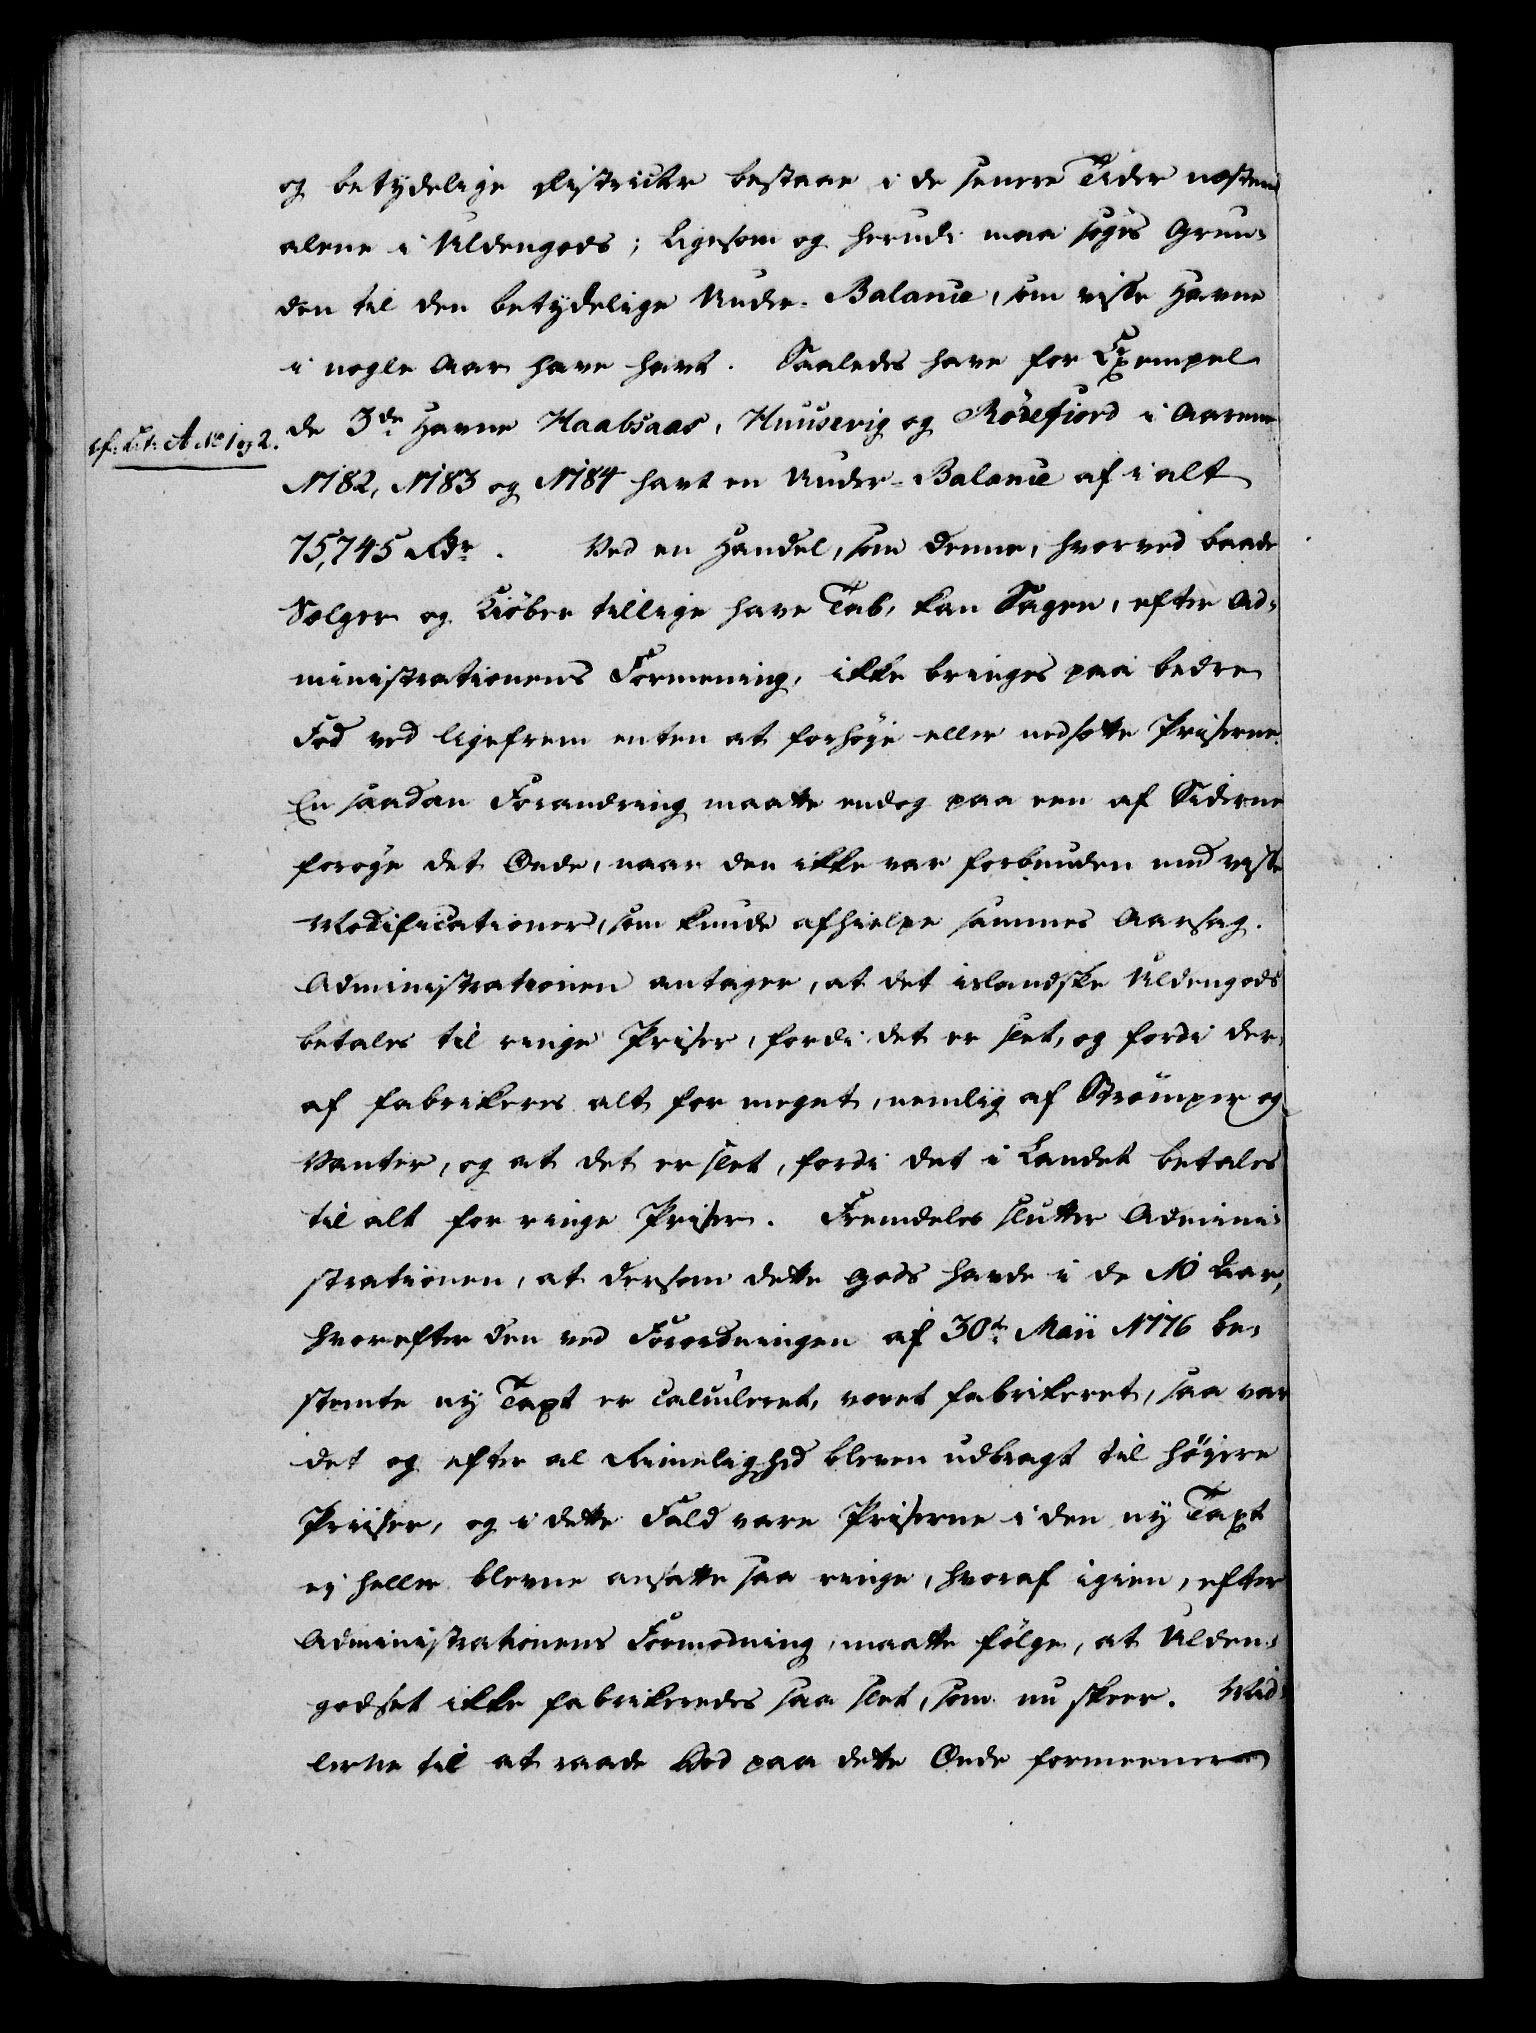 og betydelige Districter bestaar i de senere Tider næsten
alene i Uldengods; ligesom og herudi maa søges Grun-
den til den betydelige Under-Balance, som visse Havne
i nogle Aar have havt. Saaledes have for Exempel
cf. Lit: A No 1 og 2.
de 3de Havne Haabsaas, Huusevig og Rörefiord i Aarene
1782, 1783 og 1784 havt en Under-Balance af i alt
75,745 Rdr. Ved en Handel, som denne, hvorved baade
Sælger og Kiöber tillige have Tab, kan Sagen, efter Ad-
ministrationens Formening, ikke bringes paa bedre
Fod ved ligefrem enten at forhöje eller nedsætte Priserne.
En saadan Forandring maatte endog paa een af Siderne
foröge det Onde, naar den ikke var forbunden med visse
Modificationer, som kunde afhielpe sammes Aarsag.
Administrationen antager, at det islandske Uldengods
betales til ringe Priser, fordi det er slet, og fordi der-
af fabrikeres alt for meget, nemlig af Strömper og
Vanter, og at det er slet, fordi det i Landet betales
til alt for ringe Priser. Fremdeles slutter Admini-
strationen, at dersom dette Gods havde i de 10 Aar,
hvorefter den ved Forordningen af 30te Maii 1776 be-
stemte ny Taxt er calculeret, været fabrikeret, saa var
det og efter al Rimelighed bleven udbragt til höjere
Priiser, og i dette Fald vare Priserne i den ny Taxt
ej heller blevne ansatte saa ringe, hvoraf igien, efter
Administrationens Formodning, maatte fölge, at Ulden-
godset ikke fabrikeredes saa slet, som nu skeer. Mid-
lerne til at raade Bod paa dette Onde formeener